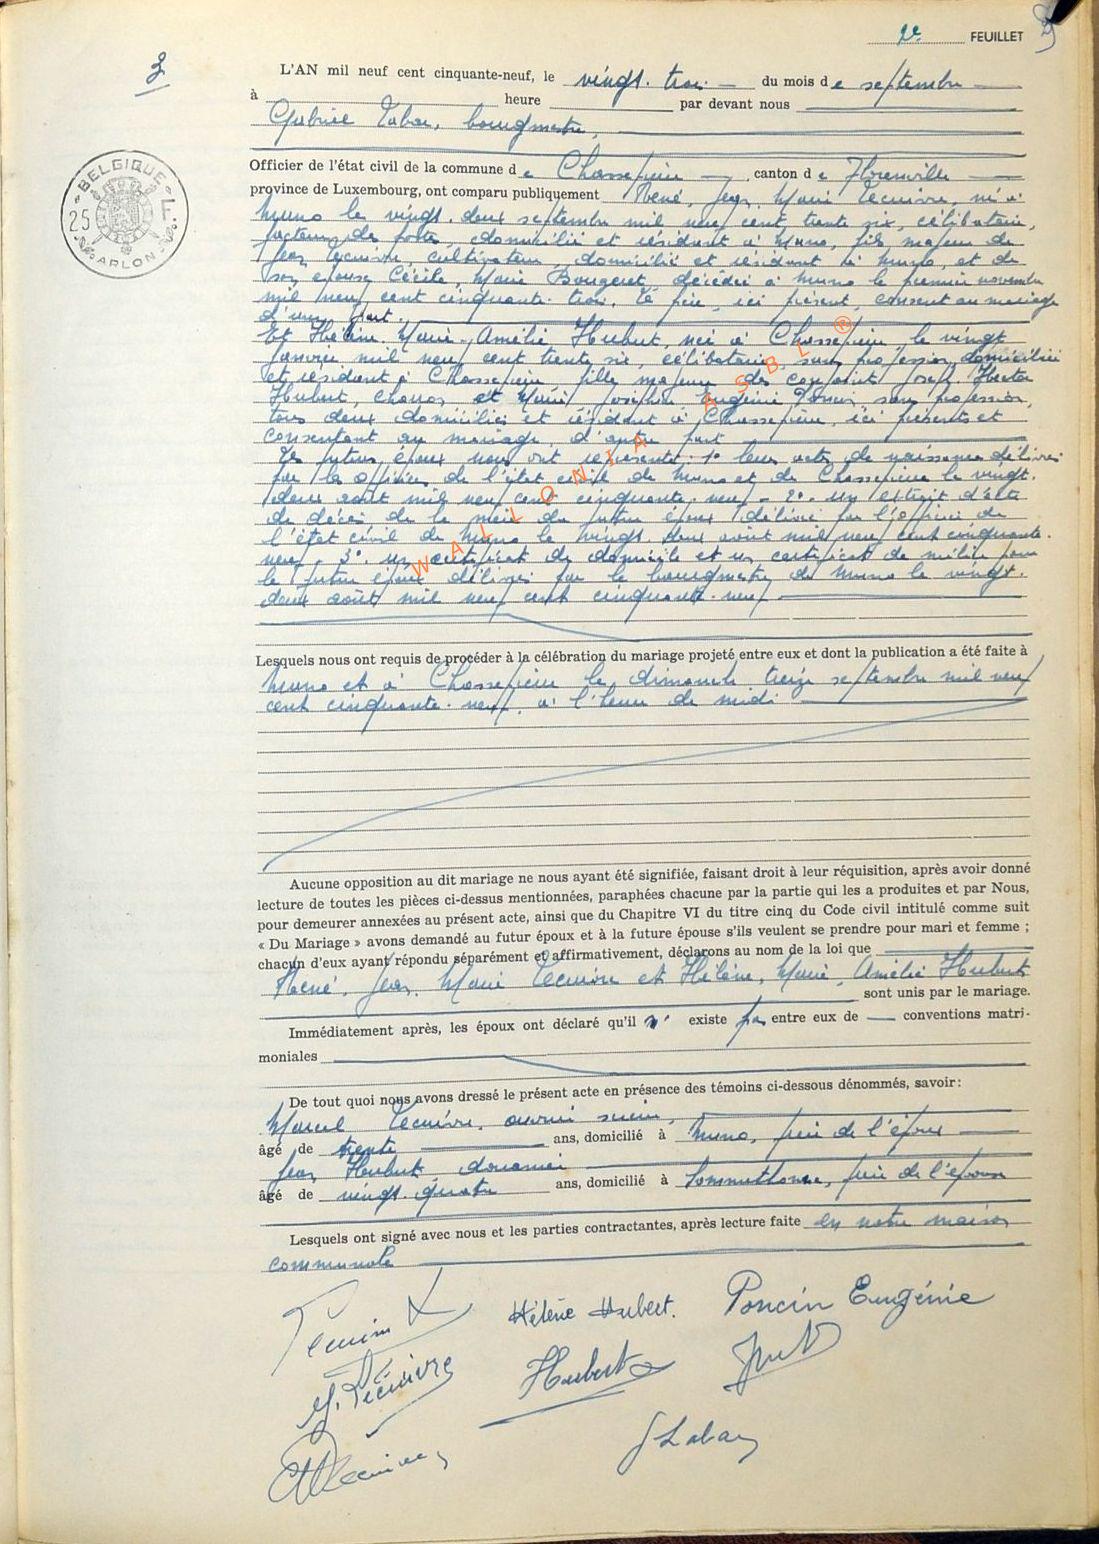 2e FEUILLET
3
L'AN mil neuf cent cinquante-neuf, le vingt-trois du mois de septembre
à heure par devant nous
Gabriel Labar, bourgmestre,
Officier de l'état civil de la commune de Chassepierre canton de Florenville
province de Luxembourg, ont comparu publiquement René, Jean, Marie Lecuivre, né à
Muno le vingt-deux septembre mil neuf cent trente six, célibataire,
facteur des postes, domicilié et résidant à Muno, fils majeur de
Jean Lecuivre, cultivateur, domicilié et résidant à Muno, et de
son épouse Cécile, Marie Bougeret, décédée à Muno le premier novembre
mil neuf cent cinquante-trois. Le père, ici présent, consent au mariage
d'une part.
Et Hélène, Marie, Amélie Hubert, née à Chassepierre, le vingt
janvier mil neuf cent trente six, célibataire, sans profession, domiciliée
et résidant à Chassepierre, fille majeure des conjoints Joseph, Hector
Hubert, et Marie, Joséphine Eugénie Poncin, sans profession,
tous deux domiciliés et résidant à Chassepierre, ici présents et
consentant au mariage, d'autre part
Les futurs époux nous ont représenté: 1° leurs actes de naissance délivrés
par les officiers de l'état civil de Muno et de Chassepierre le vingt-
deux août mil neuf cent cinquante-neuf - 2° un extrait d'acte
de décès de la mère du futur époux délivré par l'officier de
l'état civil de Muno le vingt-deux août mil neuf cent cinquante-
neuf - 3° un certificat de domicile et un certificat de milice pour
le futur époux délivrés par le bourgmestre de Muno le vingt-
deux août mil neuf cent cinquante-neuf
Lesquels nous ont requis de procéder à la célébration du mariage projeté entre eux et dont la publication a été faite à
Muno et à Chassepierre le dimanche treize septembre mil neuf
cent cinquante-neuf, à l'heure de midi
Aucune opposition au dit mariage ne nous ayant été signifiée, faisant droit à leur réquisition, après avoir donné
lecture de toutes les pièces ci-dessus mentionnées, paraphées chacune par la partie qui les a produites et par Nous,
pour demeurer annexées au présent acte, ainsi que du Chapitre VI du titre cinq du Code civil intitulé comme suit
« Du Mariage » avons demandé au futur époux et à la future épouse s'ils veulent se prendre pour mari et femme ;
chacun d'eux ayant répondu séparément et affirmativement, déclarons au nom de la loi que
René, Jean, Marie Lecuivre et Hélène, Marie, Amélie Hubert
sont unis par le mariage.
Immédiatement après, les époux ont déclaré qu'il n' existe pas entre eux de conventions matri-
moniales
De tout quoi nous avons dressé le présent acte en présence des témoins ci-dessous dénommés, savoir :
Marcel Lecuivre, ouvrier
âgé de trente ans, domicilié à Muno, frère de l'époux
Jean Hubert, douanier
âgé de vingt-quatre ans, domicilié à Sommethonne, frère de l'épouse
Lesquels ont signé avec nous et les parties contractantes, après lecture faite en notre maison
communale
Lecuivre Hélène Hubert. Poncin Eugénie
J. Lecuivre Hubert
Lecuivre GLabar
BELGIQUE
25 F.
ARLON
WALLONIA ASBL ®